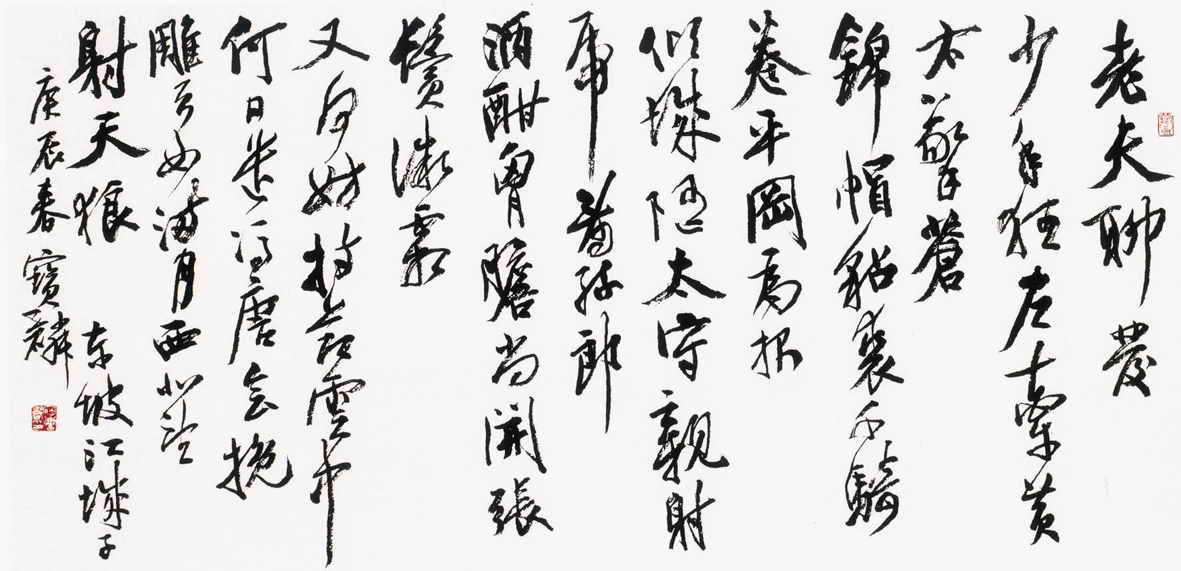 老夫聊發
少年狂左牽黃
右擎蒼
錦帽貂裘千騎
卷平岡爲報
傾城隨太守親射
虎看孫郎
酒酣胸膽尚開張
鬢微霜
又何妨持節雲中
何日遣馮唐会挽
雕弓如滿月西北望
射天狼 東坡江城子
庚辰春寶麟